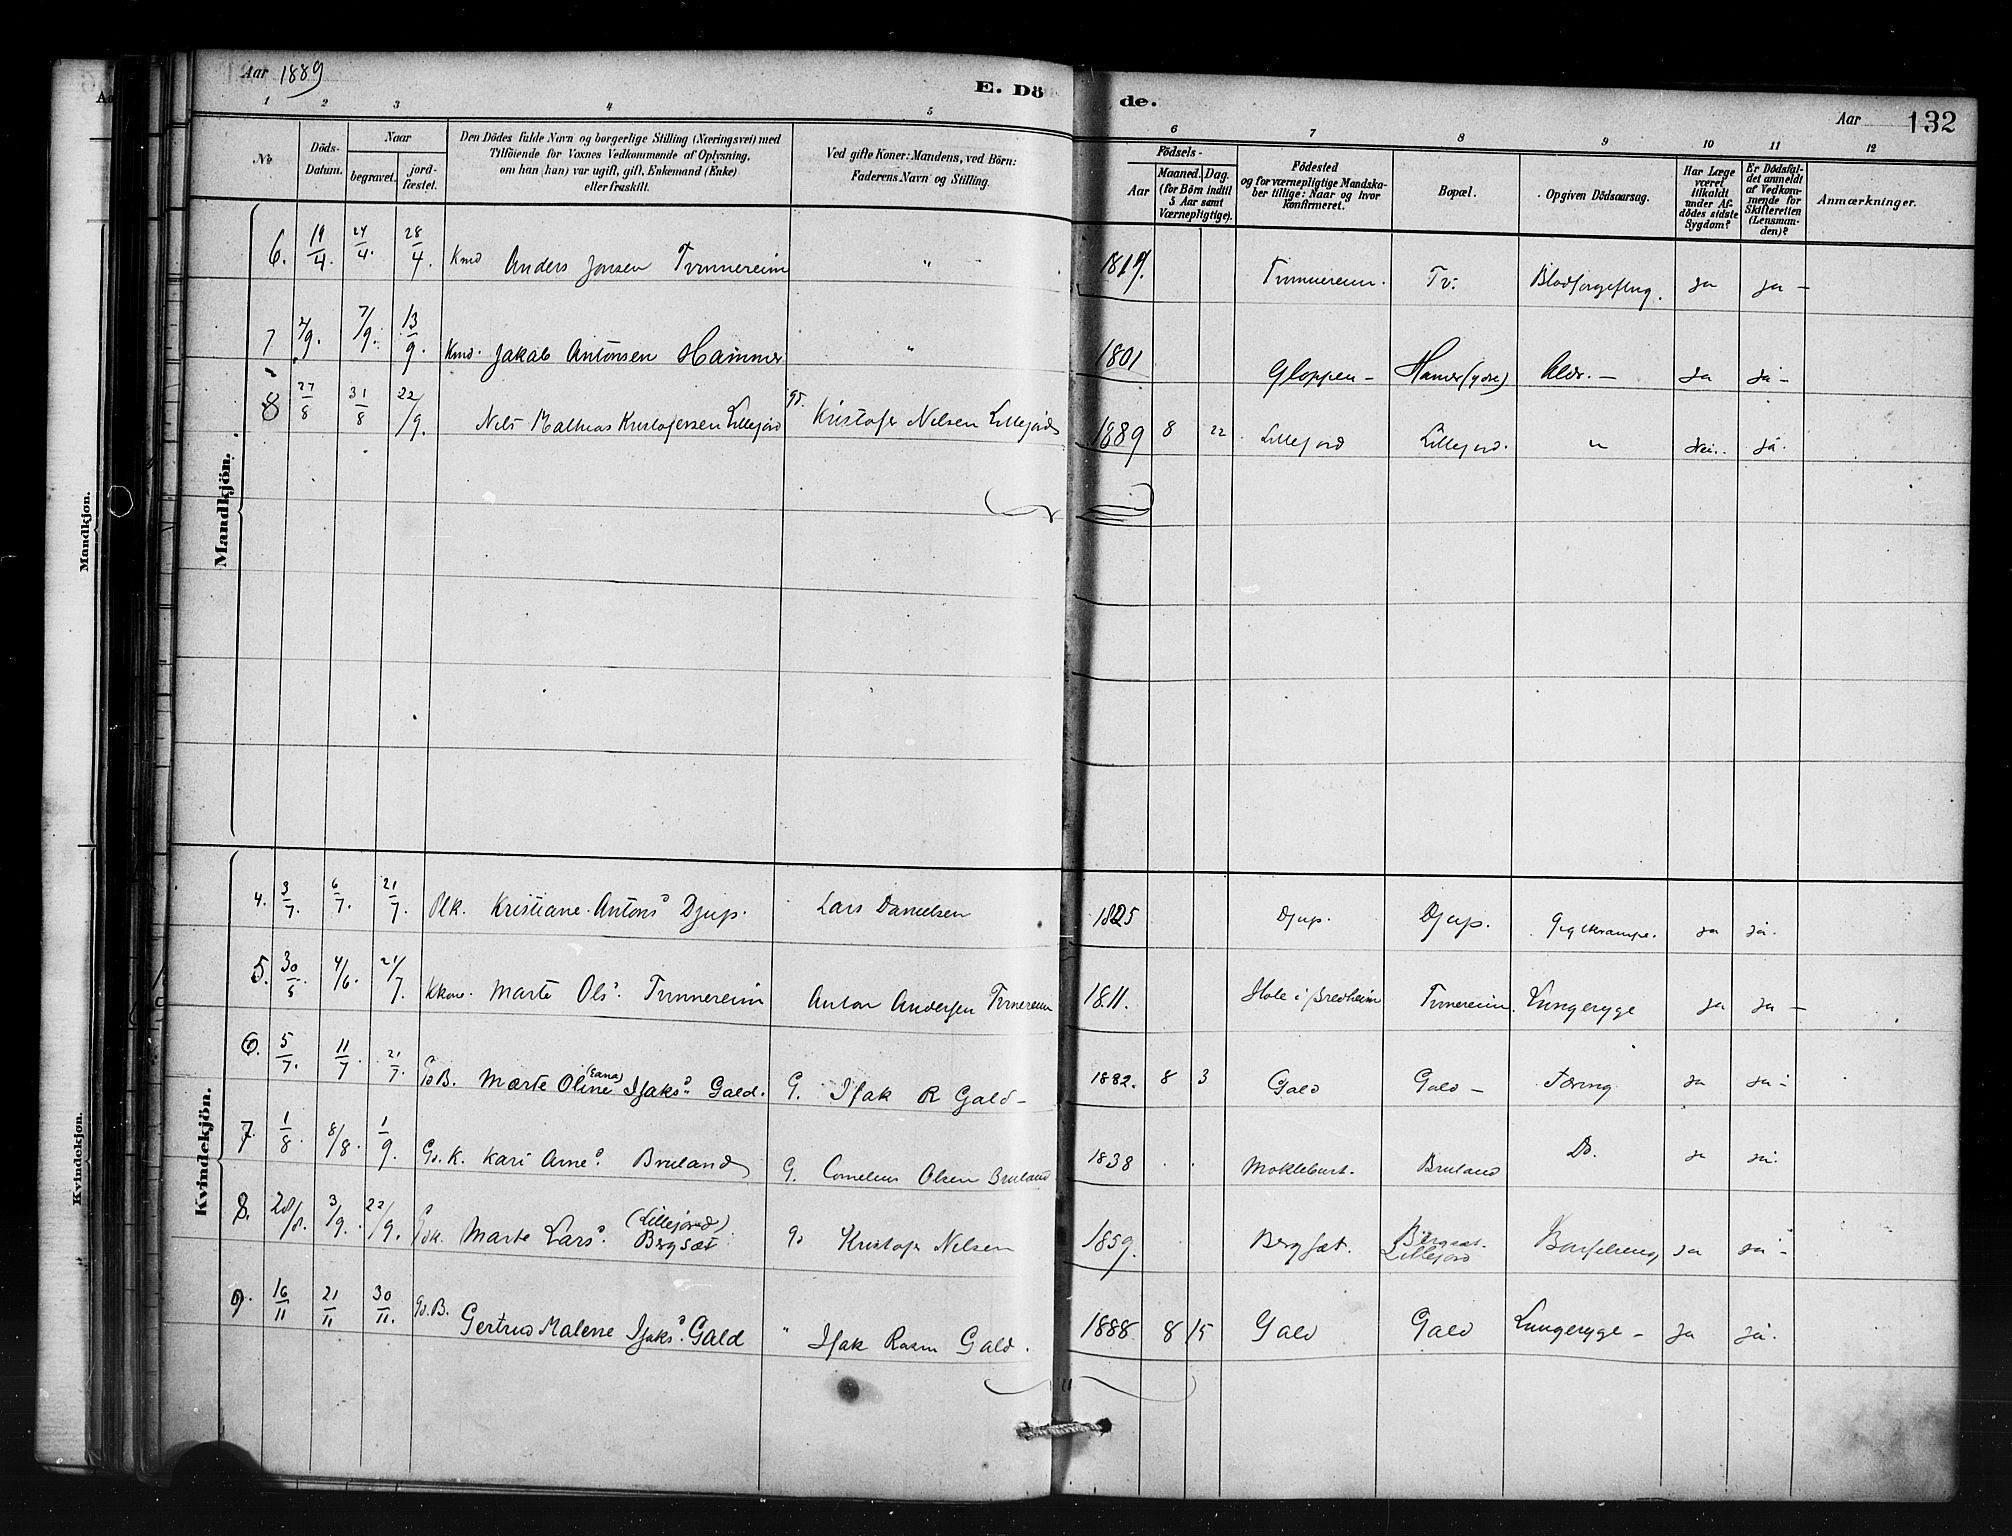 Aar 1889
E. Dö de.
Aar 132
1 2 3 4 5 6 7 8 9 10 11 12
No
Döds-Datum.
Naar
begravet.
jord-fæstet.
Den Dödes fulde Navn og borgerlige Stilling (Næringsvei) med
Tilföiende for Voxnes Vedkommende af Oplysning,
om han (hun) var ugift, gift, Enkemand (Enke)
eller fraskilt.
Ved gifte Koner: Mandens, ved Börn:
Faderens Navn og Stilling.
Födsels-
Aar
Maaned. Dag.
(for Börn indtil
5 Aar samt
Værnepligtige).
Födested
og for værnepligtige Mandska-
ber tillige: Naar og hvor
konfirmeret.
Bopæl.
Opgiven Dödsaarsag.
Har Læge
været
tilkaldt
under Af-
dödes sidste
Sygdom?
Er Dödsfal-
det anmeldt
af Vedkom-
mende for
Skifteretten
(Lensman-
den)?
Anmærkninger.
Mandkjön.
6. 19/4. 24/4. 28/4. Kmd Anders Jonsen Tvinnereim " 1819. Tvinnereim. Tv. Blodforgiftng. ja ja -
7 4/9. 7/9. 13/9. Kmd. Jakob Antonsen Hammer " 1801 Gloppen - Hamer (ydre) Alder. - ja ja -
8 27/8 31/8 22/9. Nils Mathias Kristofersen Lillejord gd. Kristofer Nilsen Lillejord 1889 8 22. Lillejord Lillejord. " Nei. ja.
Kvindekjön.
4. 3/7. 6/7. 21/7. Plk. Kristiane Antons d Djup. Lars Danielsen 1825 Djup. Djup. ja ja.
5. 30/5. 4/6. 21/7. Kkone. Marte Ols d. Tvinnereim Anton Andersen Tvinereim 1811. Hole i Bredheim Tvinereim. Lungeryge ja ja -
6. 5/7. 11/7. 21/7. Gd B. Marte Oline (Sana) Isaks d Gald. G. Isak R Gald - 1882. 8 3 Gald Gald - Tæring ja ja -
7. 1/8. 8/8. 1/9. Gd. K. Kari Arne d. Bruland G. Cornelius Olsen Bruland 1838 Moklebust. Bruland Do. ja ja.
8. 28/8. 3/9. 22/9. Gdk. Marte Lars d. (Lillejord) Bergsæt gd Kristofer Nilsen 1859. Bergsæt. Bergsæt. Lillejord Barselseng ja ja -
9. 16/11 21/11 30/11. Gd. B. Gertrud Malene Isaks d. Gald " Isak Rasm Gald. 1888. 8 15 Gald Gald Lungeryge - ja ja.
Mandkjön.
Kvindekjön.